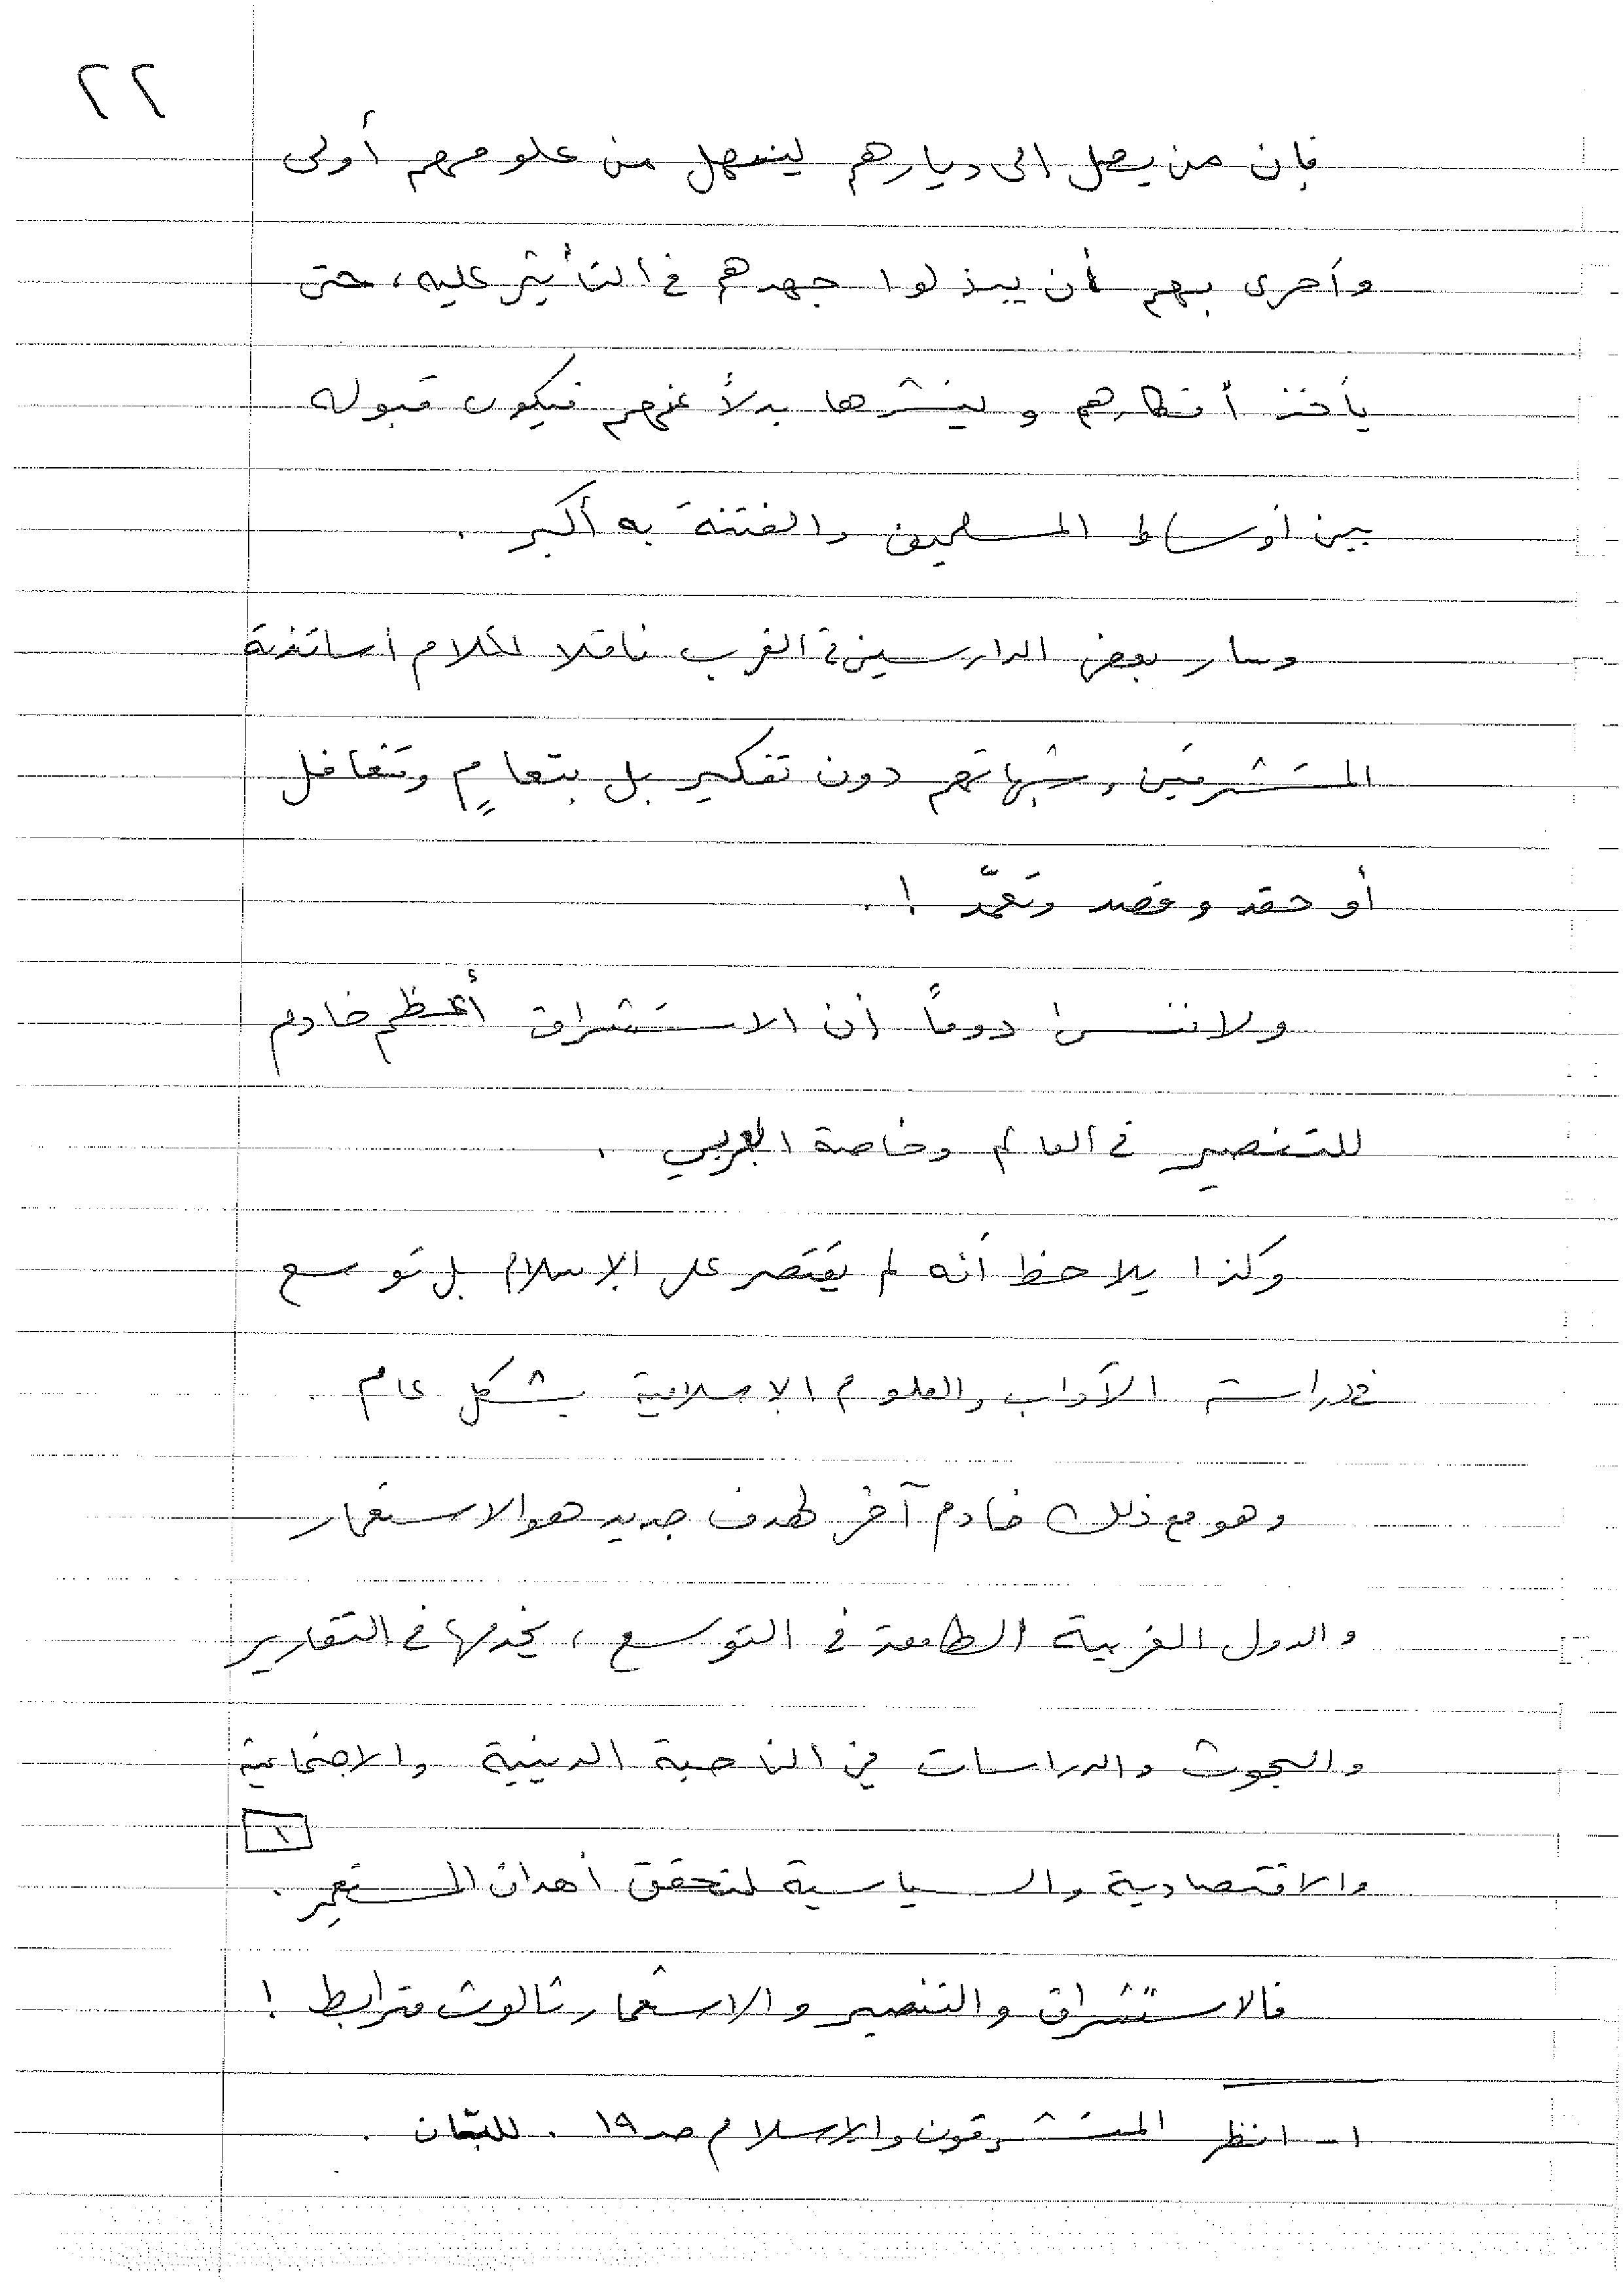 ٢٢
فإن من يصل الى ديارهم لينهل من علومهم أولى
وأحرى بهم أن يبذلوا جهدهم في التأثير عليه، حتى
يأخذ أفكارهم وينشرها بدلاً عنهم فيكون قبوله
بين أوساط المسلمين والفتنة به أكبر .
وسار بعض الدارسين في الغرب ناقلا لكلام أساتذته
المستشرقين وشبهاتهم دون تفكير بل بتعامٍ وتغافل
أو حقد وقصد وتعمّد !.
ولا ننسى دوماً أن الاستشراق أعظم خادم
للتنصير في العالم وخاصة العربي .
وكذا يلاحظ أنه لم يقتصر على الإسلام بل توسع
في دراسة الآداب والعلوم الإسلامية بشكل عام .
وهو مع ذلك خادم آخر لهدف جديد هو الاستعمار
والدول الغربية الطامعة في التوسع ، يخدمها في التقارير
والبحوث والدراسات في الناحية الدينية والاجتماعية
والاقتصادية والسياسية لتحقق أهداف المستعمِر . [١]
فالاستشراق والتنصير والاستعمار ثالوث مترابط !
١- انظر المستشرقون والإسلام صـ ١٩ . للبّان .